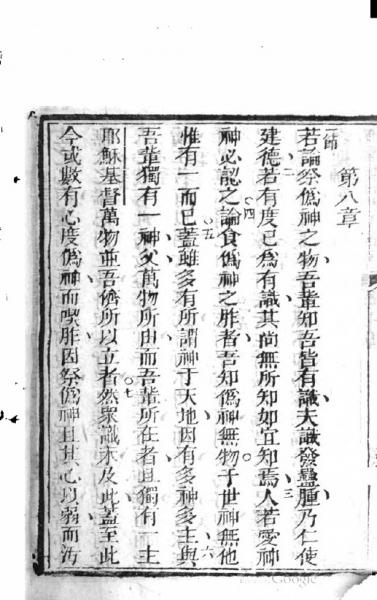 第八章
一節若論祭偽神之物吾輩知吾皆有識夫識發蠱腫乃仁使
二建德若有度已為有識其尚無所知如宜知焉三人若愛神
神必認之四論食偽神之胙者吾知偽神無物于世神無他
惟有一而已五蓋雖多有所謂神于天地因有多神多主與六
吾輩獨有一神父萬物所由而吾輩所在者且獨有一主
耶穌基督萬物並吾儕所以立者七然眾識未及此蓋至此
今或數有心度偽神而喫胙因祭偽神且其心以弱而汚
Google